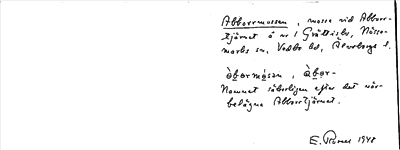 Abborrmossen, mosse vid Abborr-
tjärnet å nr 1 Gråttisbo, Nösse-
marks sn, Vedbo hd, Älvsborgs l.
àbɔrmósan, àbɔr-
Namnet säkerligen efter det när-
belägna Abborrtjärnet.
E. 1948